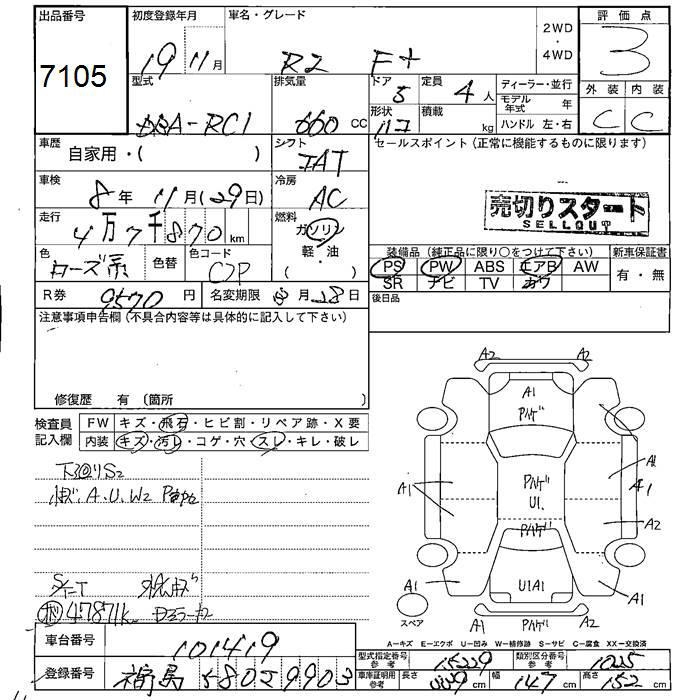 出品番号 初度登録年月 車名・グレード 評価点
7105 19 11月 R2 F+ 2WD・4WD 3
型式 排気量 ドア 定員 ディーラー・並行 外装 内装
A-RC1 660 CC 5 4人 モデル年式 年 C C
形状 積載 kg ハンドル 左・右
車歴 自家用・( ) シフト セールスポイント(正常に機能するものに限ります)
車検 8年 11月(29日) 冷房 AC
売切りスタート
SELLOUT
走行 4万7千870km 燃料 ガソリン 軽・油 ( )
色 ローズ系 色替 色コード
装備品(純正品に限り○をつけて下さい) 新車保証書
PS PW ABS エアB AW 有・無
SR ナビ TV カワ
R券 9570円 名変期限 月28日 後日品
注意事項申告欄(不具合内容等は具体的に記入して下さい)
修復歴 有(箇所
検査員記入欄 FW キズ・飛石・ヒビ割・リペア跡・X要
内装 キズ・汚レ・コゲ・穴・スレ・キレ・破レ
A2 A2
A1
A1
A1 A1
A2
A.U.W2
U1
A1 U1A1 A1
47871k
スペア A2
A-キズ E-エクボ U-凹み W-補修跡 S-サビ C-腐食 XX-交換済
車台番号 101419
型式指定番号 参考 15229 類別区分番号 参考 1025
登録番号 福島 580 9903
車庫証明用 参考 長さ cm 幅 147cm 高さ 152cm